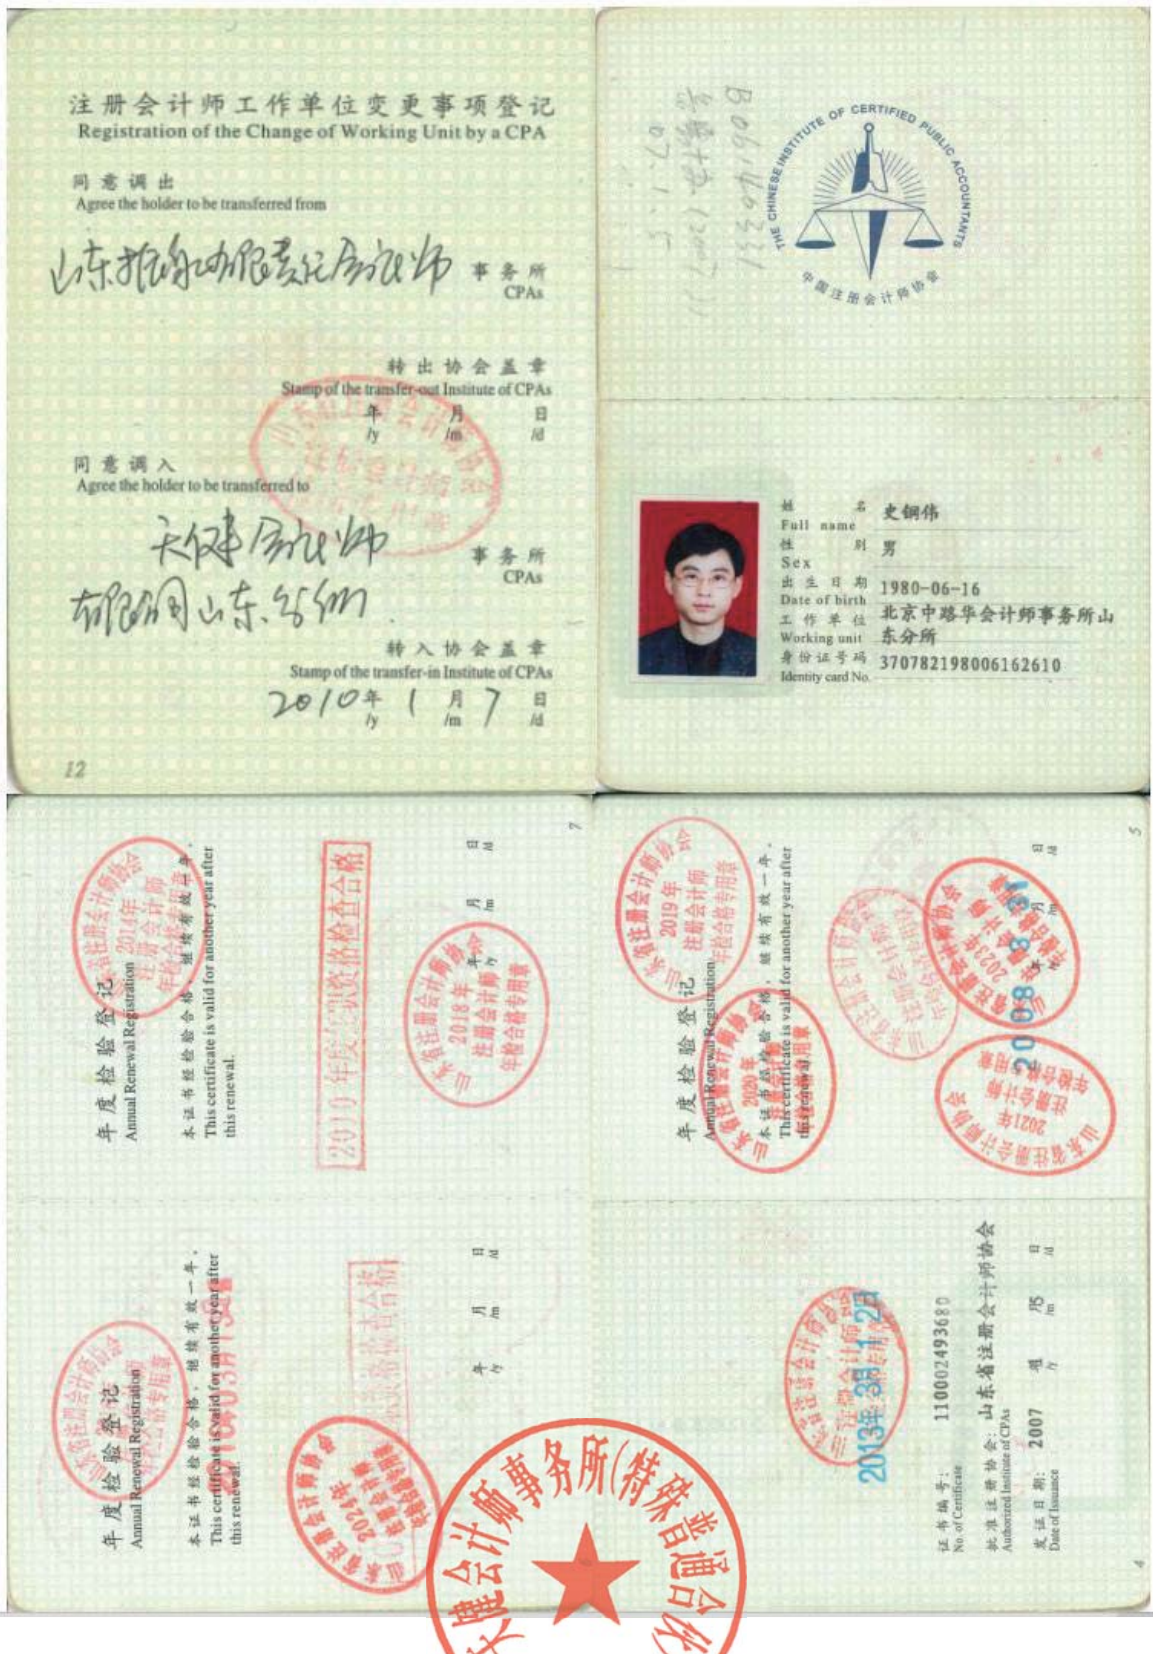 注册会计师工作单位变更事项登记
Registration of the Change of Working Unit by a CPA
同意调出
Agree the holder to be transferred from
事务所
CPAs
转出协会盖章
Stamp of the transfer-out Institute of CPAs
年 月 日
/y /m /d
同意调入
Agree the holder to be transferred to
天健会计师
事务所
CPAs
有限公司山东分所
转入协会盖章
Stamp of the transfer-in Institute of CPAs
2010年 1 月 7 日
/y /m /d
12
THE CHINESE INSTITUTE OF CERTIFIED PUBLIC ACCOUNTANTS
中国注册会计师协会
姓 名 史钢伟
Full name
性 别 男
Sex
出生日期 1980-06-16
Date of birth
工作单位 北京中路华会计师事务所山
Working unit 东分所
身份证号码 370782198006162610
Identity card No.
7
年度检验登记
Annual Renewal Registration
本证书经检验合格，继续有效一年。
This certificate is valid for another year after
this renewal.
山东省注册会计师协会
2014年
注册会计师
年检合格专用章
2010年度任职资格检查合格
山东省注册会计师协会
2018年
注册会计师
年检合格专用章
年 月 日
/y /m /d
5
年度检验登记
Annual Renewal Registration
本证书经检验合格，继续有效一年。
This certificate is valid for another year after
this renewal.
山东省注册会计师协会
2019年
注册会计师
年检合格专用章
山东省注册会计师协会
2020年
注册会计师
年检合格专用章
山东省注册会计师协会
2023年
注册会计师
年检合格专用章
山东省注册会计师协会
2021年
注册会计师
年检合格专用章
年 月 日
/y /m /d
年度检验登记
Annual Renewal Registration
本证书经检验合格，继续有效一年。
This certificate is valid for another year after
this renewal.
山东省注册会计师协会
2024年
注册会计师
年检合格专用章
年 月 日
/y /m /d
2013年3月12日
证书编号： 110002493680
No. of Certificate
批准注册协会： 山东省注册会计师协会
Authorized Institute of CPAs
发证日期： 2007
Date of Issuance /y /m /d
4
天健会计师事务所(特殊普通合伙